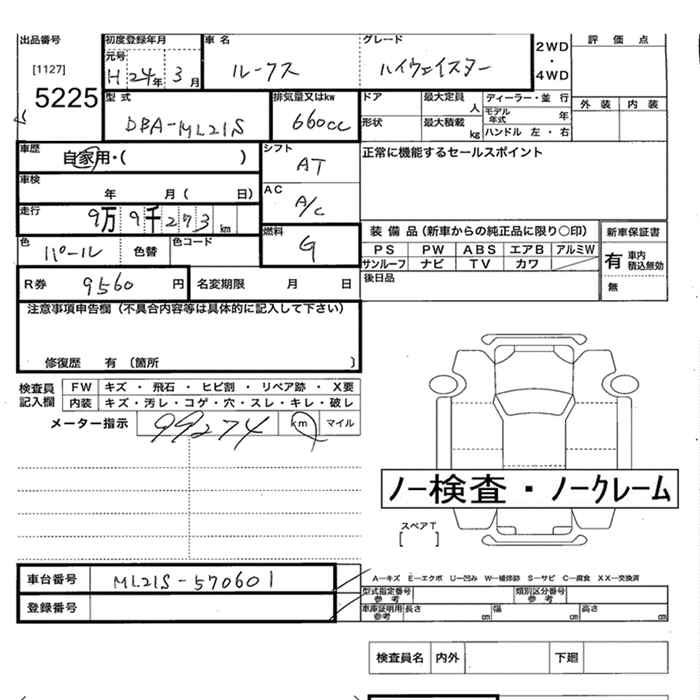 出品番号 初度登録年月 車名 グレード 2WD・4WD 評価点
[1127] 元号 H 24年 3月 ルークス ハイウェイスター
5225 型式 排気量又はkw ドア 最大定員 人 ディーラー・並行 外装 内装
DBA-ML21S 660cc 形状 最大積載 kg モデル年式 年
ハンドル 左・右
車歴 自家用・( ) シフト AT 正常に機能するセールスポイント
車検 年 月( 日) AC A/C
走行 9万9千273 km 燃料 G 装備品(新車からの純正品に限り○印) 新車保証書
色 パール 色替 色コード PS PW ABS エアB アルミW 有 車内積込無効
サンルーフ ナビ TV カワ
R券 9560 円 名変期限 月 日 後日品 無
注意事項申告欄(不具合内容等は具体的に記入して下さい)
修復歴 有 (箇所 )
検査員記入欄 FW キズ・飛石・ヒビ割・リペア跡・X要
内装 キズ・汚レ・コゲ・穴・スレ・キレ・破レ
メーター指示 99274 km マイル
ノー検査・ノークレーム
スペアT
[ ]
車台番号 ML21S-570601 A-キズ E-エクボ U-凹み W-補修跡 S-サビ C-腐食 XX-交換済
登録番号 型式指定番号 参考 類別区分番号 参考
車庫証明用 参考 長さ cm 幅 cm 高さ cm
検査員名 内外 下廻